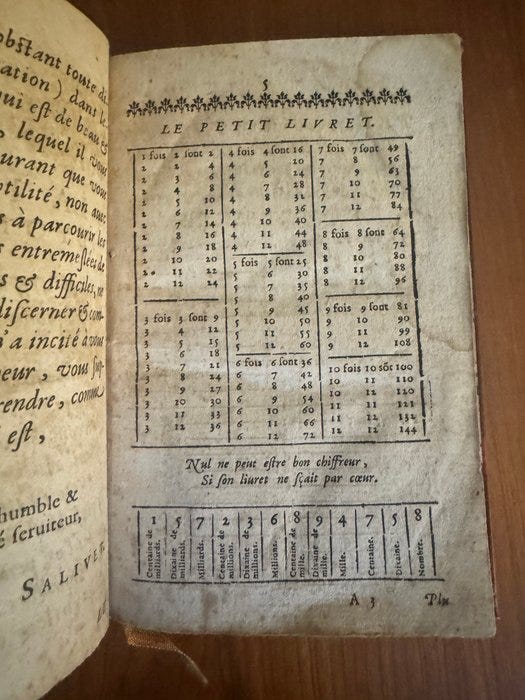 obſtant toute di
ation ) dans le
ui eſt de beau &
, lequel il vous
urant que vous
tilité, non avec
s à parcourir les
s entremeſlées de
s & difficiles, ne
diſcerner & com-
'a incité à vous
neur, vous ſup-
rendre, comme
eſt,
humble &
é ſeruiteur,
SALIVE
5
LE PETIT LIVRET.
1 fois 2 ſont 2
2 2 4
2 3 6
2 4 8
2 5 10
2 6 12
2 7 14
2 8 16
2 9 18
2 10 20
2 11 22
2 12 24
3 fois 3 ſont 9
3 4 12
3 5 15
3 6 18
3 7 21
3 8 24
3 9 27
3 10 30
3 11 33
3 12 36
4 fois 4 ſont 16
4 5 20
4 6 24
4 7 28
4 8 32
4 9 36
4 10 40
4 11 44
4 12 48
5 fois 5 ſont 25
5 6 30
5 7 35
5 8 40
5 9 45
5 10 50
5 11 55
5 12 60
6 fois 6 ſont 36
6 7 42
6 8 48
6 9 54
6 10 60
6 11 66
6 12 72
7 fois 7 ſont 49
7 8 56
7 9 63
7 10 70
7 11 77
7 12 84
8 fois 8 ſont 64
8 9 72
8 10 80
8 11 88
8 12 96
9 fois 9 ſont 81
9 10 90
9 11 99
9 12 108
10 fois 10 ſōt 100
10 11 110
10 12 120
11 11 121
11 12 132
12 12 144
Nul ne peut eſtre bon chiffreur,
Si ſon liuret ne ſçait par cœur.
1 5 7 2 3 6 8 9 4 7 5 8
Centaine de milliards.
Dixaine de milliards.
Milliards.
Centaine de millions.
Dixaine de millions.
Millions.
Centaine de mille.
Dixaine de mille.
Mille.
Centaine.
Dixaine.
Nombre.
A 3
Plu